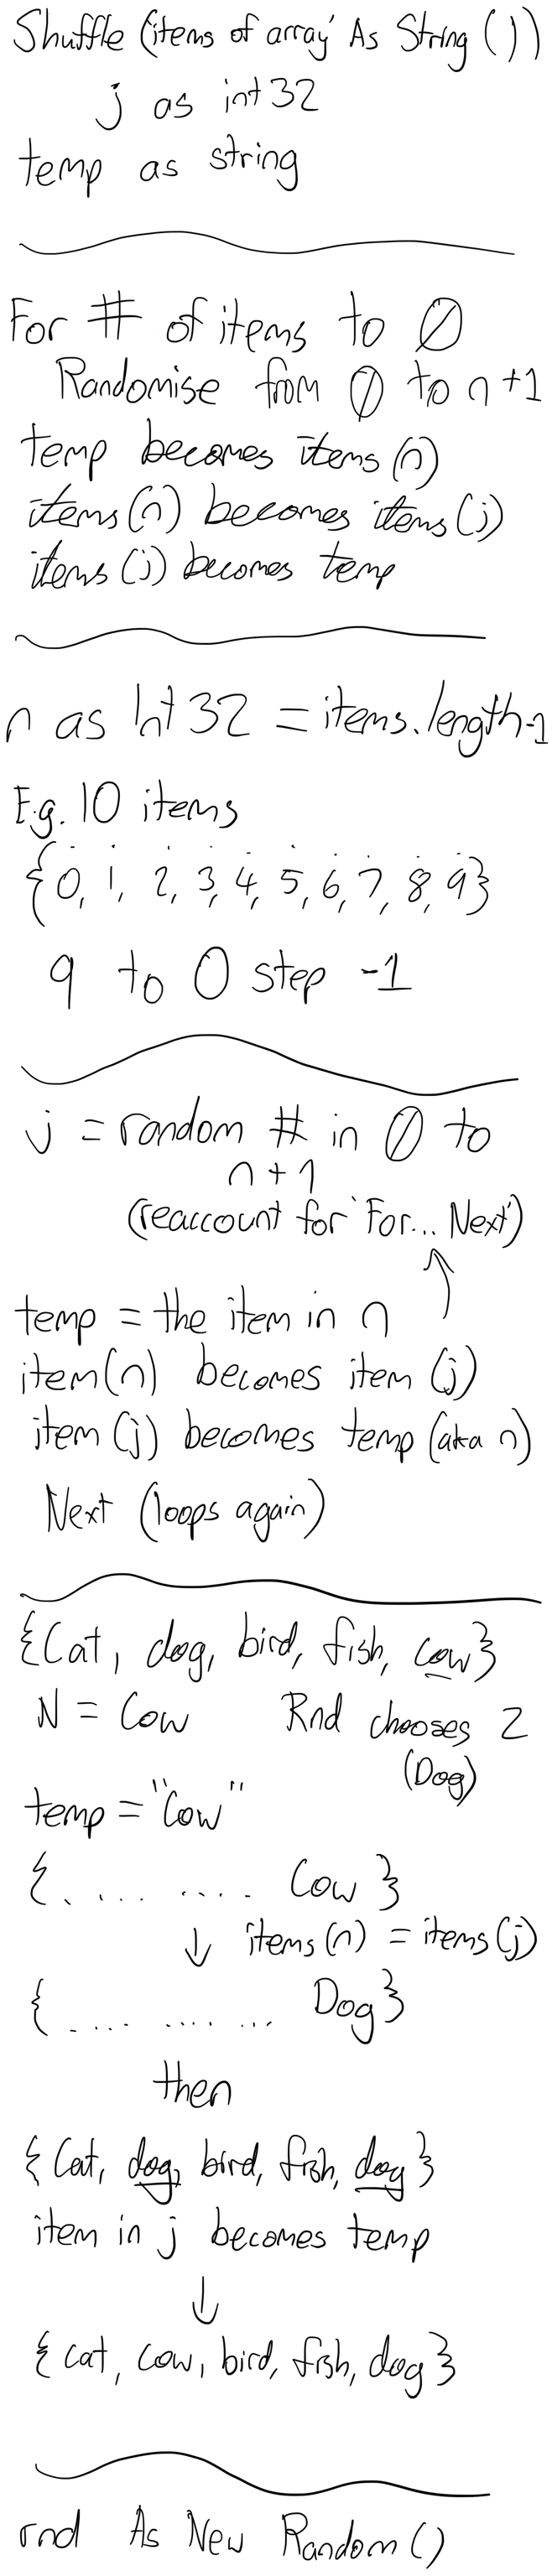 Shuffle (items of array As String ())
j as int 32
temp as string
For # of items to 0
Randomise from 0 to n+1
temp becomes items (n)
items (n) becomes items (j)
items (j) becomes temp
n as Int 32 = items.length-1
E.g. 10 items
{0, 1, 2, 3, 4, 5, 6, 7, 8, 9}
9 to 0 step -1
j = random # in 0 to
n+1
(reaccount for 'For... Next')
temp = the item in n
item(n) becomes item (j)
item (j) becomes temp (aka n)
Next (loops again)
{Cat, dog, bird, fish, cow}
N = Cow Rnd chooses 2
(Dog)
temp = "Cow"
{. ... .... Cow }
items (n) = items (j)
{ . ... .... ... Dog}
then
{ Cat, dog, bird, fish, dog }
item in j becomes temp
{ cat, cow, bird, fish, dog }
rnd As New Random ()